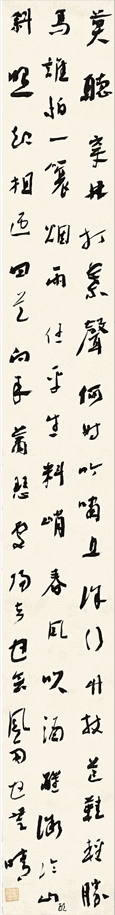 莫聽穿林打葉聲何妨吟嘯且徐行竹杖芒鞋輕勝
馬誰怕一蓑煙雨任平生料峭春風吹酒醒微冷山頭
斜照却相迎回首向來蕭瑟處歸去也無風雨也無晴